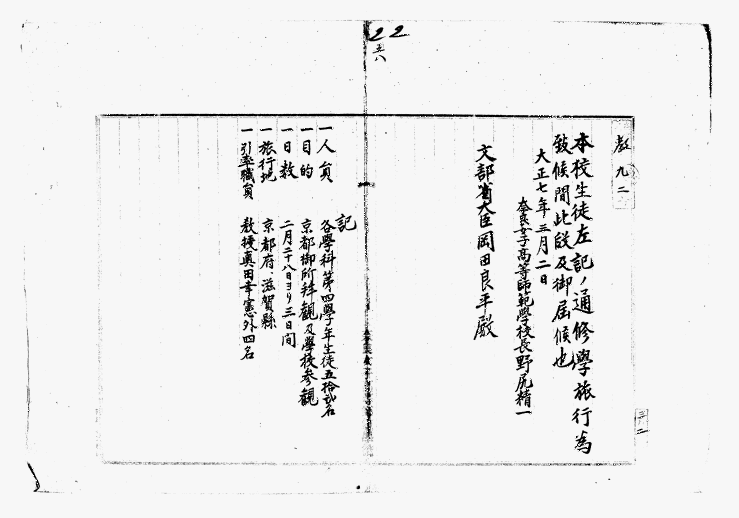 22
五八
教九二
本校生徒左記ノ通修學旅行為
致候間此段及御屆候也
大正七年三月二日
奈良女子高等師範學校長野尻精一
文部省大臣岡田良平殿
記
一人員 各學科第四學年生徒五拾貳名
一目的 京都御所拜觀及學校參觀
一日數 二月二十八日ヨリ三日間
一旅行地 京都府、滋賀縣
一引率職員 教授眞田幸憲外四名